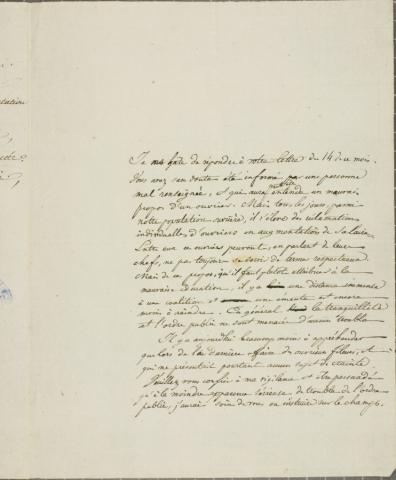 Je me hâte de répondre à votre lettre du 14 de ce mois.
Vous avez sans doute été informé par une personne
mal renseignée, & qui aura entendu un mauvais
propos d'un ouvrier. Mais tous les jours, parmi
notre population ouvrière, il s'élève des
individuelles d'ouvriers en augmentation de salaire
ouvriers peuvent, en parlant de leurs
chefs, ne pas toujours se servir de termes respectueux.
Mais de ce propos, qu'il faut plutôt attribuer à la
mauvaise éducation, il y a une distance immense
à une coalition et une émeute et encore
moins à craindre. En général la tranquillité
et l'ordre public ne sont menacés d'aucun trouble
Il y a aujourd'hui beaucoup moins à appréhender
que lors de la dernière affaire des ouvriers fileurs, &
qui ne présentait pourtant aucun sujet de crainte
Veuillez vous confier à ma vigilance et être persuadé
qu'à la moindre apparence sérieuse de trouble de l'ordre
public, j'aurai soin de vous en instruire sur le champ.